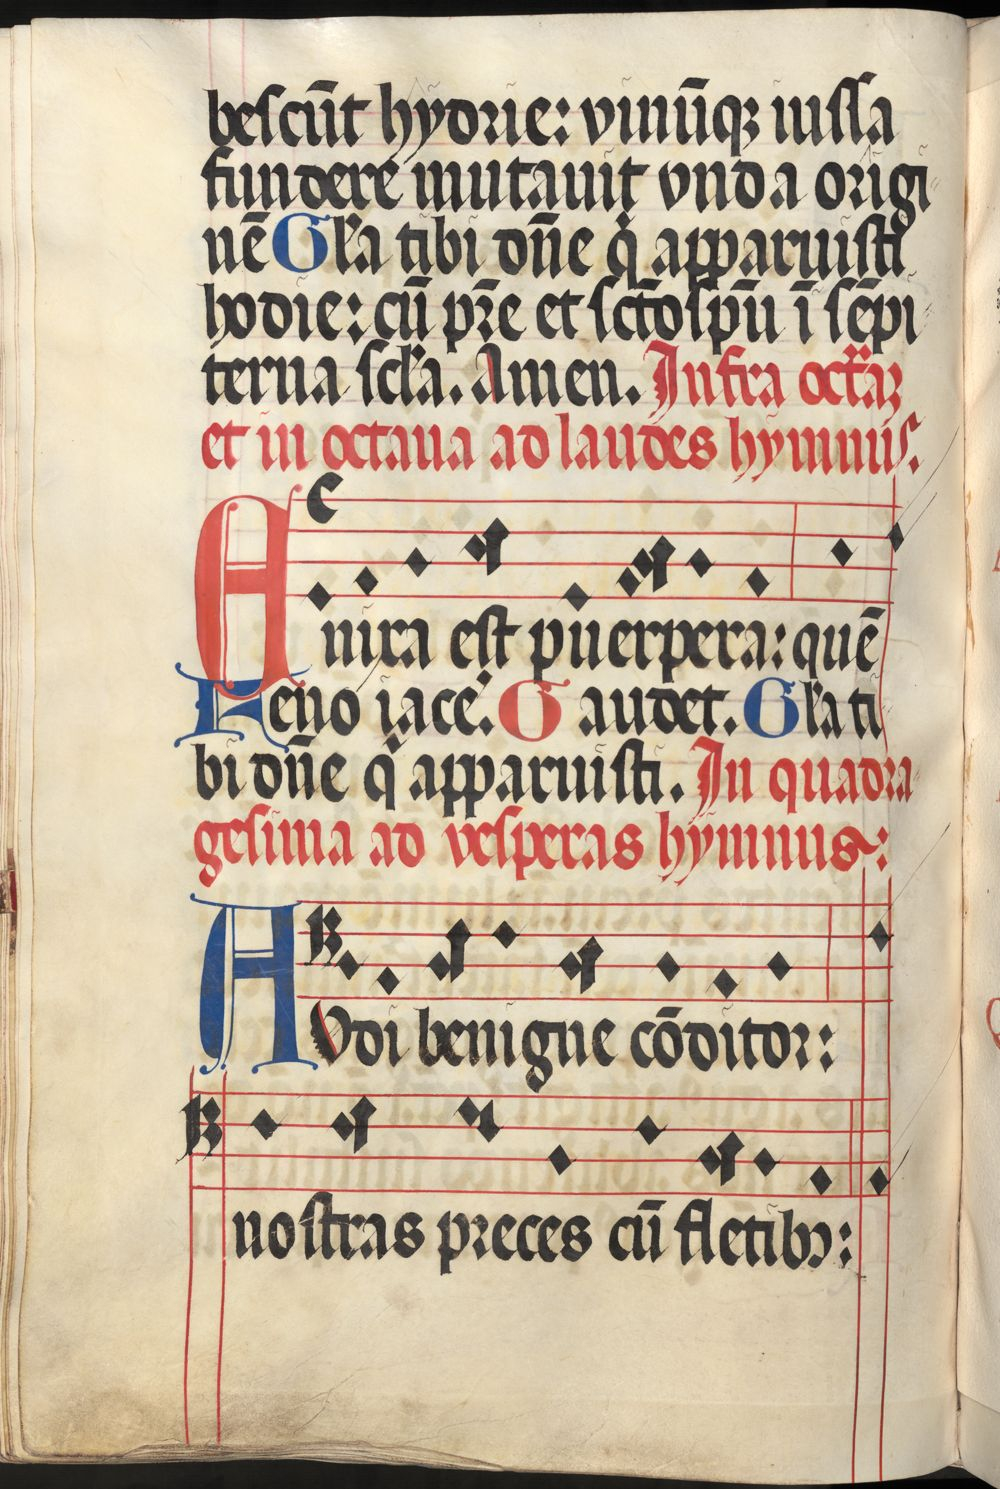 bescūt hydrie: vinūq; iussa
fundere mutauit vnda origi
nē Gl'a tibi dn̄e q̇ apparuisti
hodie: cū pr̄e et sctōspū ī sēpi
terna scl'a. Amen. Infra octaꝝ
et in octaua ad laudes hymnus.
Enixa est puerpera: quē
Feno iace'. Gaudet. Gl'a ti
bi dn̄e q̇ apparuisti. In quadra
gesima ad vesperas hymnus:
AVdi benigne cōditor:
nostras preces cū fletibꝫ: